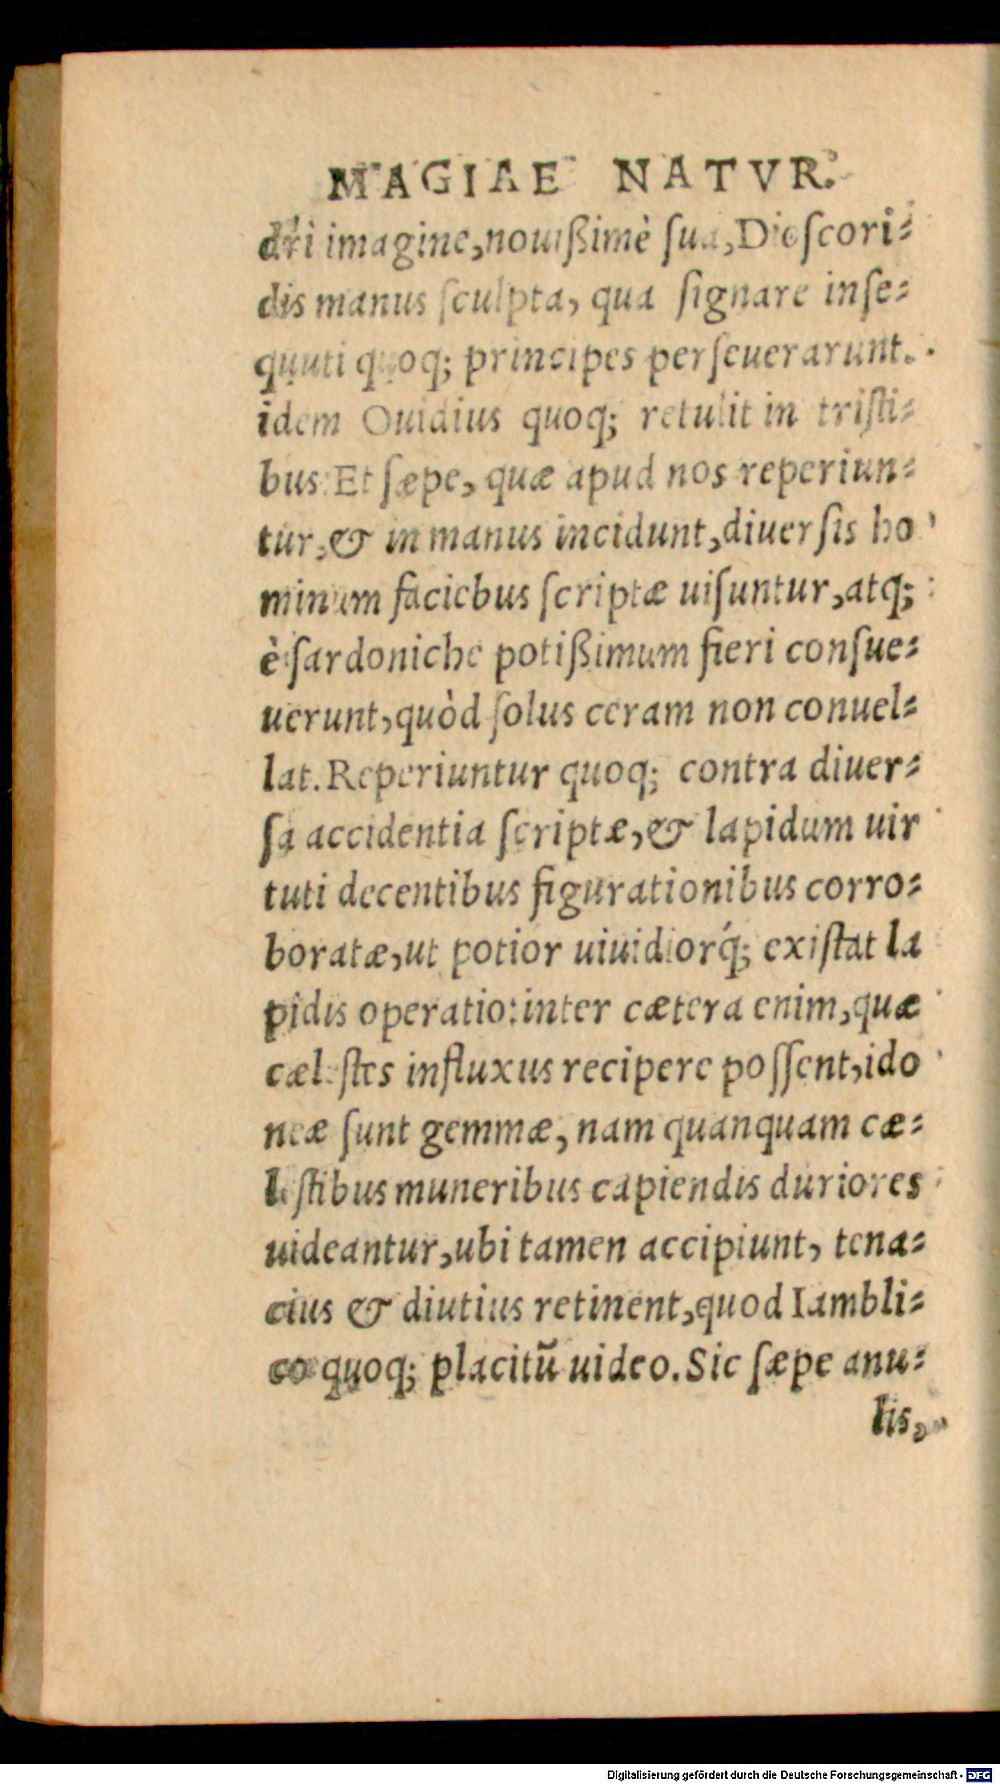 MAGIAE NATVR.
dri imagine,nouißimè sua,Dioſcori⸗
dis manus ſculpta, qua ſignare inſe⸗
quuti quoq; principes perſeuerarunt.
idem Ouidius quoq; retulit in triſti⸗
bus: Et ſæpe, quæ apud nos reperiun⸗
tur,& in manus incidunt,diuerſis ho
minum faciebus ſcriptæ uiſuntur,atq;
è ſardoniche potißimum fieri conſue⸗
uerunt,quòd ſolus ceram non conuel⸗
lat. Reperiuntur quoq; contra diuer⸗
ſa accidentia ſcriptæ,& lapidum uir
tuti decentibus figurationibus corro⸗
boratæ,ut potior uiuidiorq́; exiſtat la
pidis operatio:inter cætera enim,quæ
cæleſtes influxus recipere poſſent,ido
neæ ſunt gemmæ, nam quanquam cæ⸗
leſtibus muneribus capiendis duriores
uideantur,ubi tamen accipiunt, tena⸗
cius & diutius retinent,quod Iambli⸗
co quoq; placitũ uideo. Sic ſæpe anu⸗
lis,
Digitalisierung gefördert durch die Deutsche Forschungsgemeinschaft - DFG